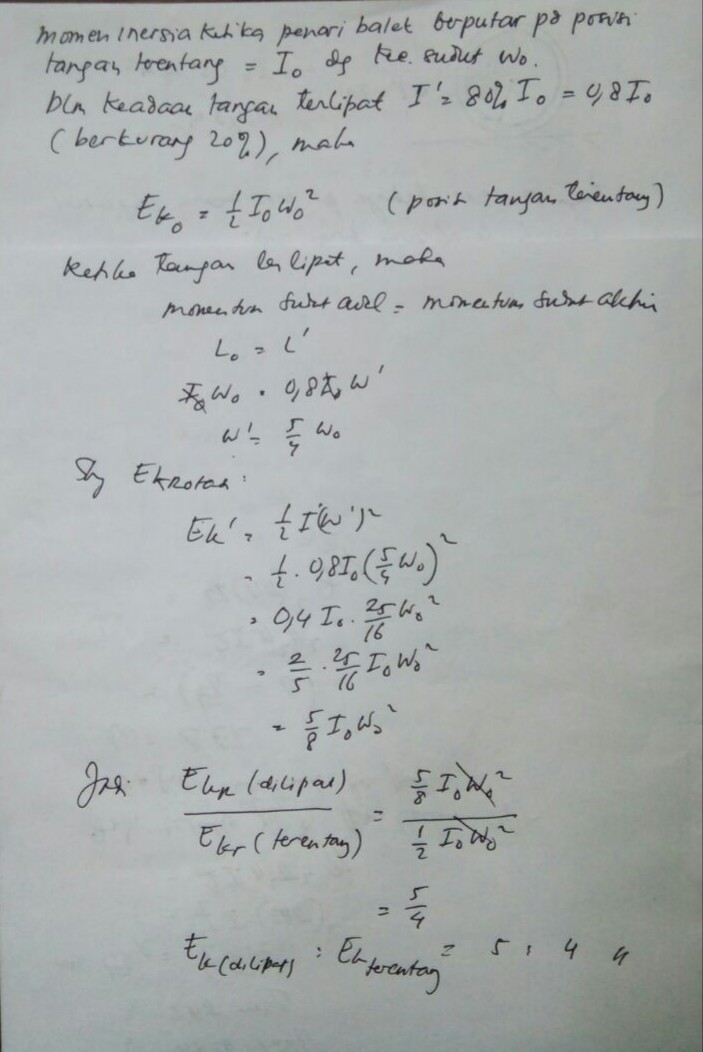 momen inersia ketika penari balet berputar pd posisi
tangan terentang = I₀ dg kec. sudut ω₀.
Dlm keadaan tangan terlipat I' = 80% I₀ = 0,8 I₀
(berkurang 20%), maka
Ek₀ = 1/2 I₀ω₀² (posisi tangan terentang)
Ketika tangan terlipat, maka
momentum sudut awal = momentum sudut akhir
L₀ = L'
I₀ω₀ = 0,8 I₀ ω'
ω' = 5/4 ω₀
Shg Ekrotasi :
Ek' = 1/2 I'(ω')²
= 1/2 . 0,8I₀ (5/4 ω₀)²
= 0,4 I₀ . 25/16 ω₀²
= 2/5 . 25/16 I₀ω₀²
= 5/8 I₀ω₀²
Jadi Ekr (dilipat) / Ekr (terentang) = 5/8 I₀ω₀² / 1/2 I₀ω₀²
= 5/4
Ek (dilipat) : Ek terentang = 5 : 4